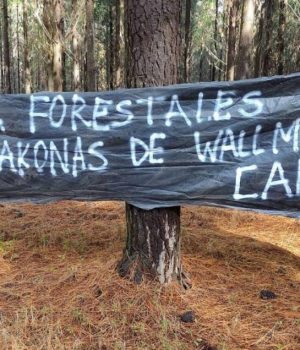 FORESTALES
AKONAS DE WALLM
CA